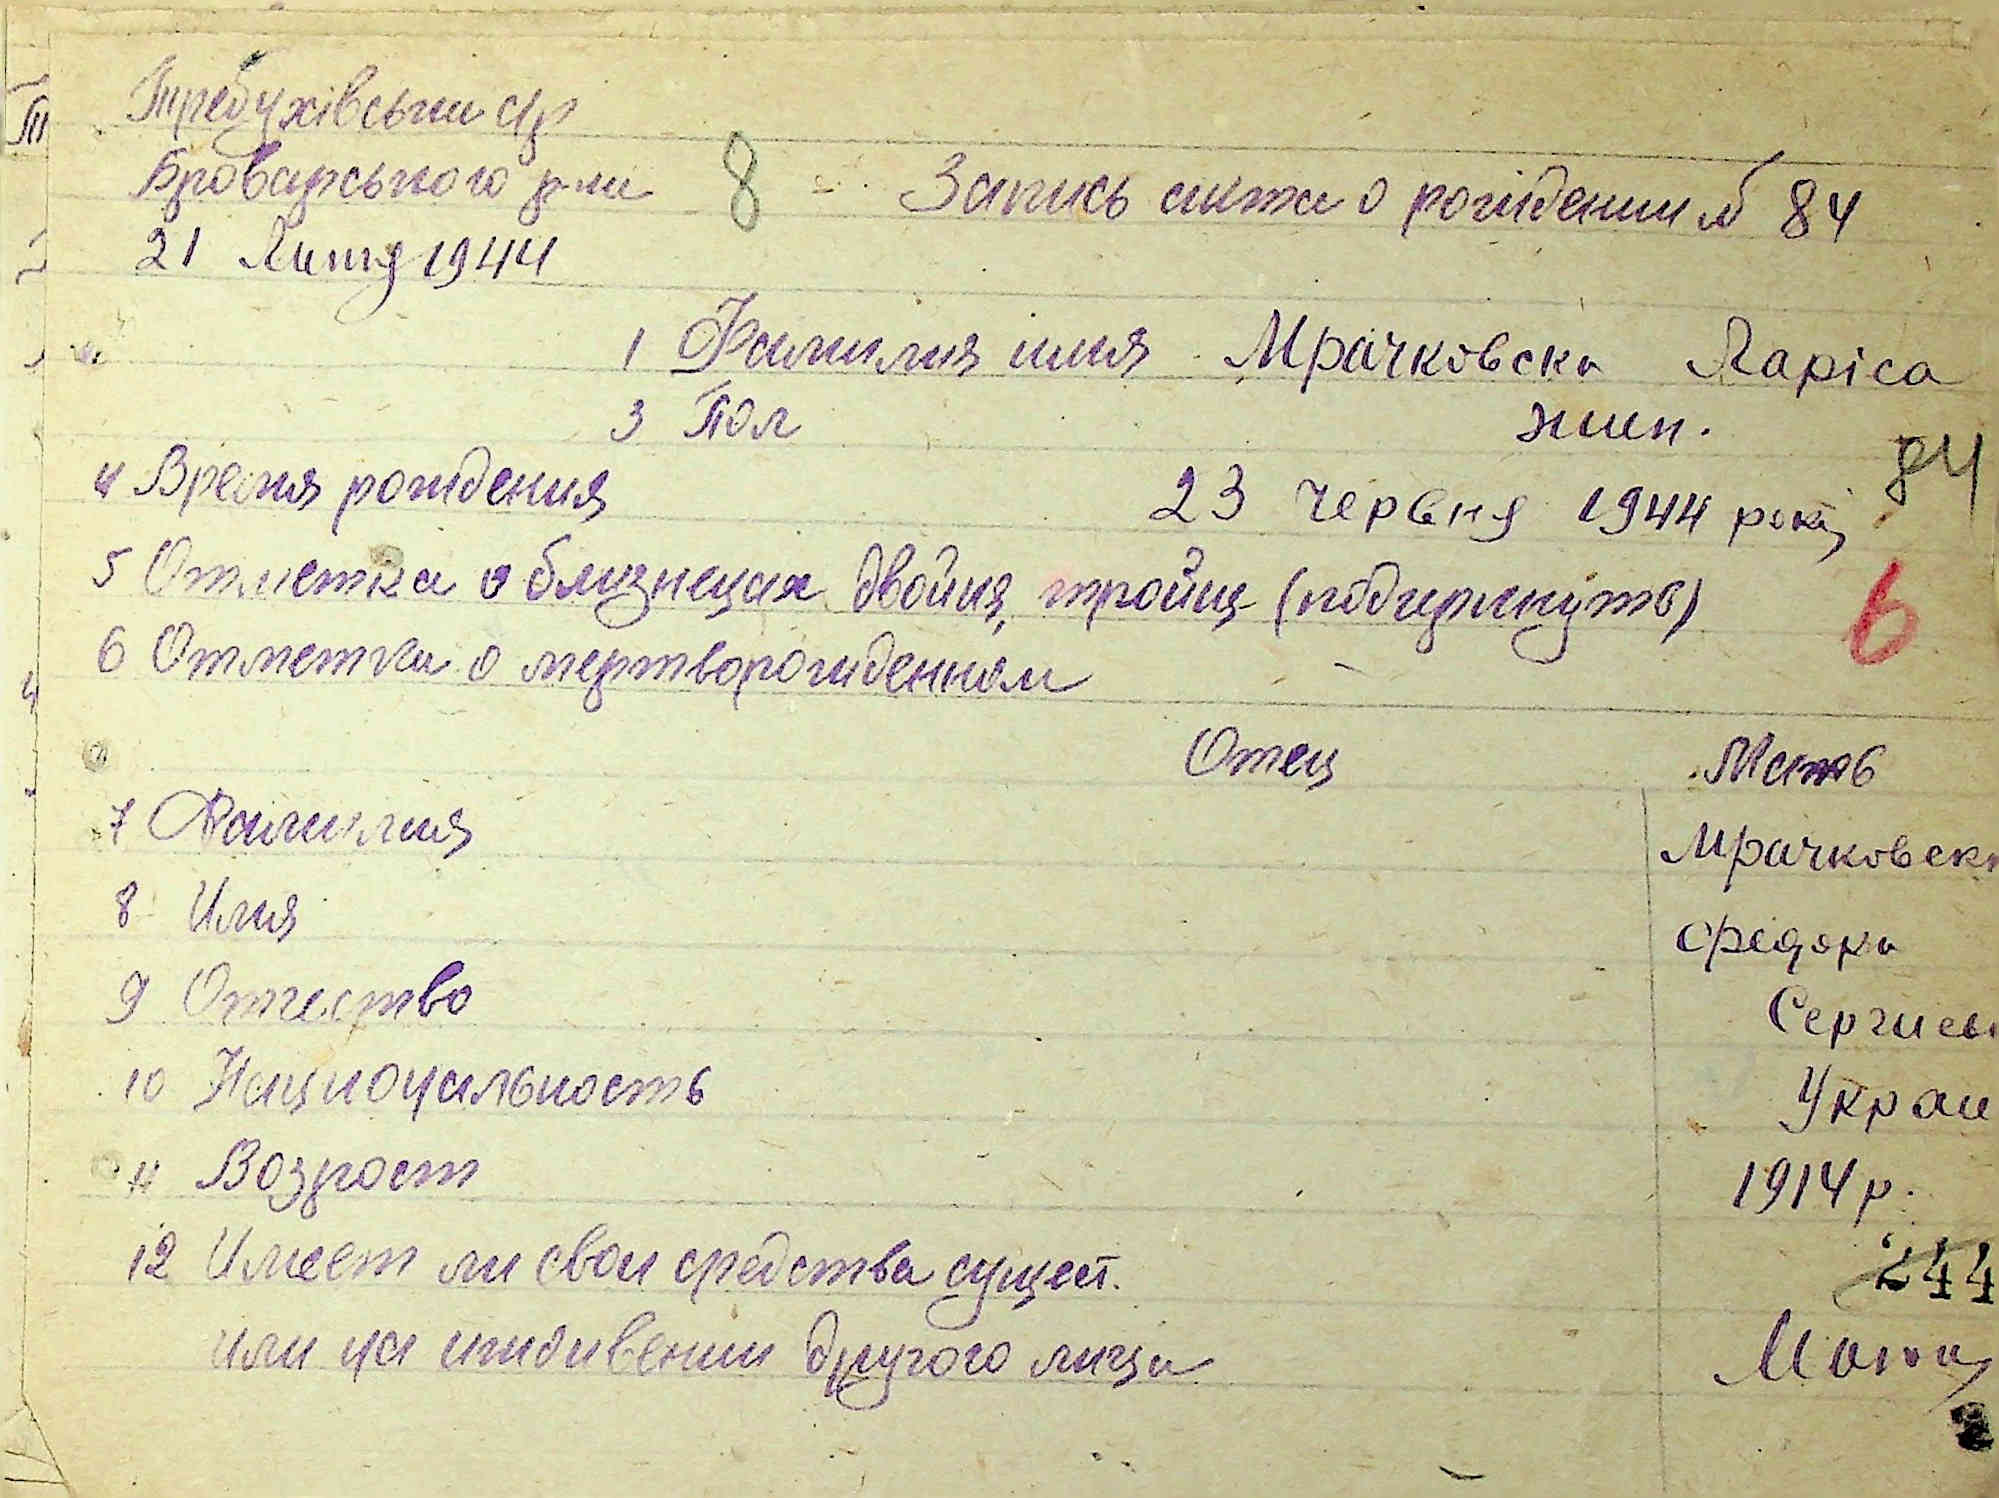 Требухівськи с/р
Броварського р-на 8 Запись акта о рождении № 84
21 Липня 1944
1 Фамилия имя Мрачковска Ларіса
3 Пол жен.
84
4 Время рождения 23 червня 1944 року
5 Отметка о близнецах двойня, тройня (подчеркнуть) 6
6 Отметка о мертворожденном –
Отец Мать
7 Фамилия Мрачковск
8 Имя
9 Отчество Сергиев
10 Национальность Украи
11 Возраст 1914 р.
244
12 Имеет ли свои средства сущест.
или на иждивении другого лица